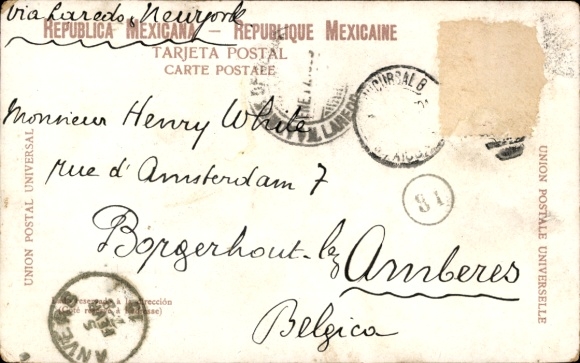 via Laredo, Newyork
REPUBLICA MEXICANA — REPUBLIQUE MEXICAINE
TARJETA POSTAL
CARTE POSTALE
SUCURSAL 8
LAREDO
Monsieur Henry White
rue d'Amsterdam 7
81
Borgerhout-lez
Amberes
Belgica
UNION POSTAL UNIVERSAL
UNION POSTALE UNIVERSELLE
Lado reservado á la dirección
(Coté reservé à l'adresse)
ANVERS